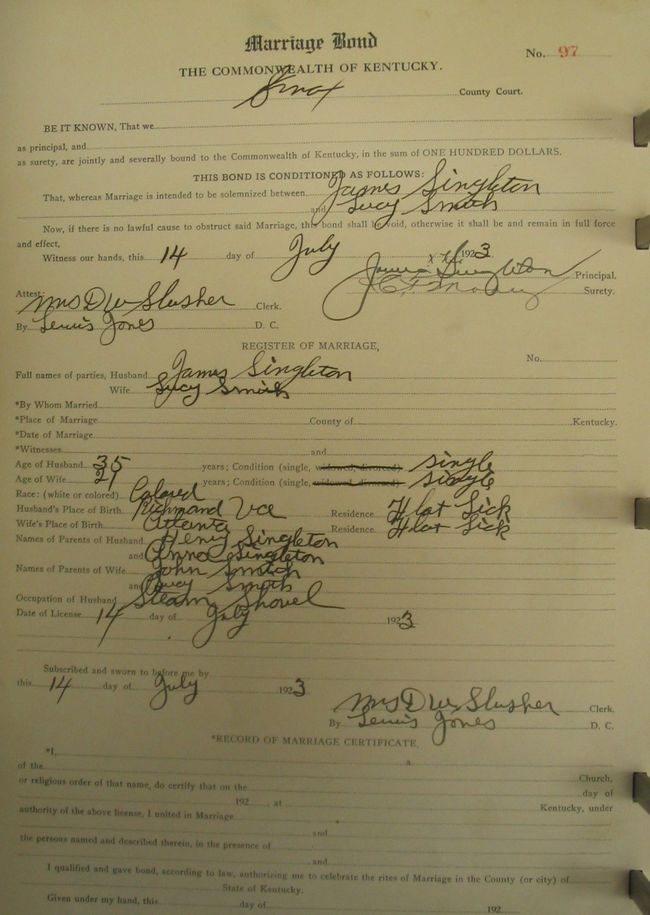 Marriage Bond
No. 97
THE COMMONWEALTH OF KENTUCKY.
Knox County Court.
BE IT KNOWN, That we
as principal, and
as surety, are jointly and severally bound to the Commonwealth of Kentucky, in the sum of ONE HUNDRED DOLLARS.
THIS BOND IS CONDITIONED AS FOLLOWS:
That, whereas Marriage is intended to be solemnized between James Singleton
and Lucy Smith
Now, if there is no lawful cause to obstruct said Marriage, this bond shall be void, otherwise it shall be and remain in full force
and effect,
Witness our hands, this 14 day of July 1923
James Singleton Principal.
Surety.
Attest:
Mrs D W Slusher Clerk.
By Lewis Jones D. C.
REGISTER OF MARRIAGE,
No.
Full names of parties, Husband James Singleton
Wife Lucy Smith
*By Whom Married
*Place of Marriage County of Kentucky.
*Date of Marriage
*Witnesses and
Age of Husband 35 years; Condition (single, widowed, divorced) single
Age of Wife 21 years; Condition (single, widowed, divorced) single
Race: (white or colored) Colored
Husband's Place of Birth Richmond Va Residence Flat Lick
Wife's Place of Birth Atlanta Residence Flat Lick
Names of Parents of Husband Henry Singleton
and Anna Singleton
Names of Parents of Wife John Smith
and Lucy Smith
Occupation of Husband Steam Shovel
Date of License 14 day of July 1923
Subscribed and sworn to before me by
this 14 day of July 1923
Mrs D W Slusher Clerk.
By Lewis Jones D. C.
*RECORD OF MARRIAGE CERTIFICATE,
*I, a
of the Church,
or religious order of that name, do certify that on the day of
192 , at Kentucky, under
authority of the above license, I united in Marriage
and
the persons named and described therein, in the presence of
and
I qualified and gave bond, according to law, authorizing me to celebrate the rites of Marriage in the County (or city) of
State of Kentucky.
Given under my hand, this day of 192